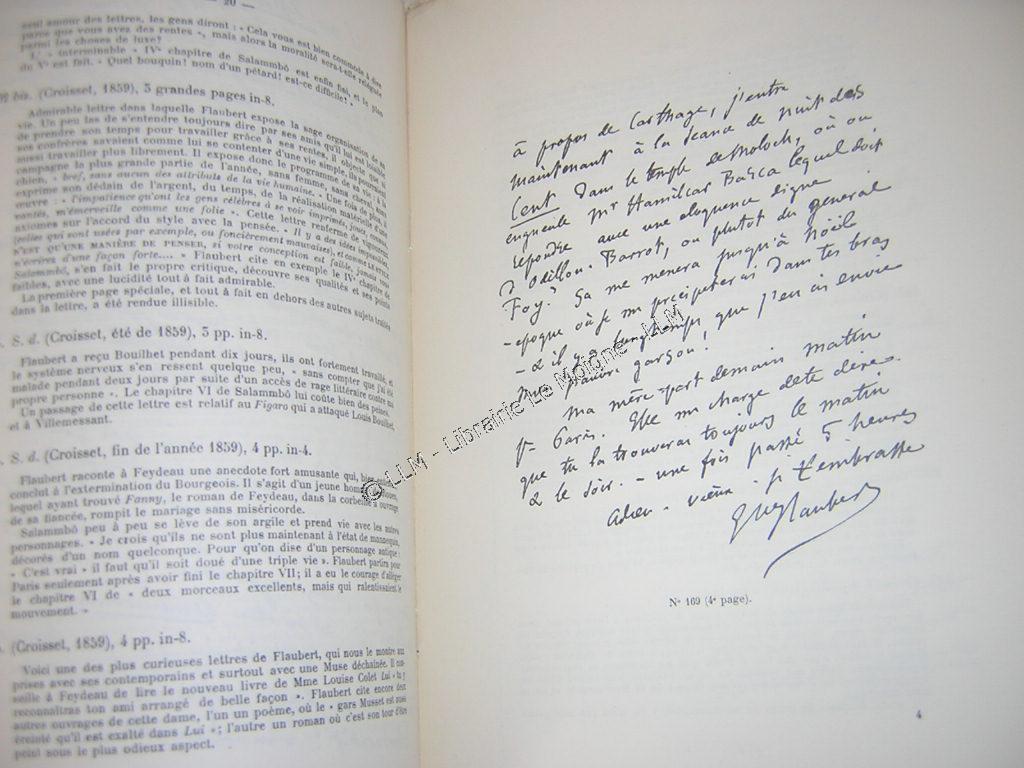 — 20 —
seul amour des lettres, les gens diront : « Cela vous est bien commode à dire
parce que vous avez des rentes », mais alors la moralité sera-t-elle reléguée
parmi les choses de luxe?
L' « interminable » IVe chapitre de Salammbô est enfin fini, et le plan
du Ve est fait. « Quel bouquin! nom d'un pétard! est-ce difficile! »
bis. (Croisset, 1859), 3 grandes pages in-8.
Admirable lettre dans laquelle Flaubert expose la sage organisation de sa
vie. Un peu las de s'entendre toujours dire par ses amis qu'il lui est loisible
de prendre son temps pour travailler grâce à ses rentes, il objecte que si
ses confrères savaient comme lui se contenter d'une vie simple, ils pourraient
aussi travailler plus librement. Il expose donc le programme de sa vie à la
campagne la plus grande partie de l'année, sans femme, sans cheval, sans
chien, « bref, sans aucun des attributs de la vie humaine. » Une fois de plus, il
exprime son dédain de l'argent, du temps, de la réalisation matérielle d'une
œuvre : « l'impatience qu'ont les gens célèbres à se voir imprimés, joués, connus,
vantés, m'émerveille comme une folie ». Cette lettre renferme de vigoureux
axiomes sur l'accord du style avec la pensée. « Il y a des idées impossibles
(celles qui sont usées par exemple, ou foncièrement mauvaises), et comme LE STYLE
N'EST QU'UNE MANIÈRE DE PENSER, si votre conception est faible, jamais vous
n'écrirez d'une façon forte.... » Flaubert cite en exemple le IVe chapitre de
Salammbô, s'en fait le propre critique, découvre ses qualités et ses points
faibles, avec une lucidité tout à fait admirable.
La première page spéciale, et tout à fait en dehors des autres sujets traités
dans la lettre, a été rendue illisible.
S. d. (Croisset, été de 1859), 3 pp. in-8.
Flaubert a reçu Bouilhet pendant dix jours, ils ont fortement travaillé, et
le système nerveux s'en ressent quelque peu, « sans compter que j'ai été
malade pendant deux jours par suite d'un accès de rage littéraire contre ma
propre personne ». Le chapitre VI de Salammbô lui coûte bien des peines.
Un passage de cette lettre est relatif au Figaro qui a attaqué Louis Bouilhet,
et à Villemessant.
S. d. (Croisset, fin de l'année 1859), 4 pp. in-4.
Flaubert raconte à Feydeau une anecdote fort amusante qui, bien
conclut à l'extermination du Bourgeois. Il s'agit d'un jeune homme
lequel ayant trouvé Fanny, le roman de Feydeau, dans la corbeille à ouvrage
de sa fiancée, rompit le mariage sans miséricorde.
Salammbô peu à peu se lève de son argile et prend vie avec les autres
personnages. « Je crois qu'ils ne sont plus maintenant à l'état de mannequin,
décorés d'un nom quelconque. Pour qu'on dise d'un personnage antique :
« C'est vrai » il faut qu'il soit doué d'une triple vie ». Flaubert partira pour
Paris seulement après avoir fini le chapitre VII; il a eu le courage d'alléger
le chapitre VI de « deux morceaux excellents, mais qui ralentissaient le
mouvement. »
(Croisset, 1859), 4 pp. in-8.
Voici une des plus curieuses lettres de Flaubert, qui nous le montre aux
prises avec ses contemporains et surtout avec une Muse déchaînée. Il con-
seille à Feydeau de lire le nouveau livre de Mme Louise Colet Lui « tu y
reconnaîtras ton ami arrangé de belle façon ». Flaubert cite encore deux
autres ouvrages de cette dame, l'un un poème, où le « gars Musset est aussi
éreinté qu'il est exalté dans Lui »; l'autre un roman où c'est son tour d'être
peint sous le plus odieux aspect.
à propos de Carthage, j'entre
maintenant à la séance de nuit des
Cent dans le temple de Moloch, où on
engueule Mr Hamilcar Barca lequel doit
répondre avec une éloquence digne
d'Odillon-Barrot, ou plutot du general
Foy. Ça me menera jusqu'à Noël
- epoque où je me precipiterai dans tes bras
- & il y a longtemps que j'en ai envie
mon pauvre garçon.
ma mère part demain matin
pr Paris. Elle me charge de te dire
que tu la trouveras toujours le matin
& le soir. - une fois passé 5 heures
adieu - vieux - je t'embrasse
Gve Flaubert
N° 169 (4e page).
4
© LLM - Librairie Le Moigne - LLM